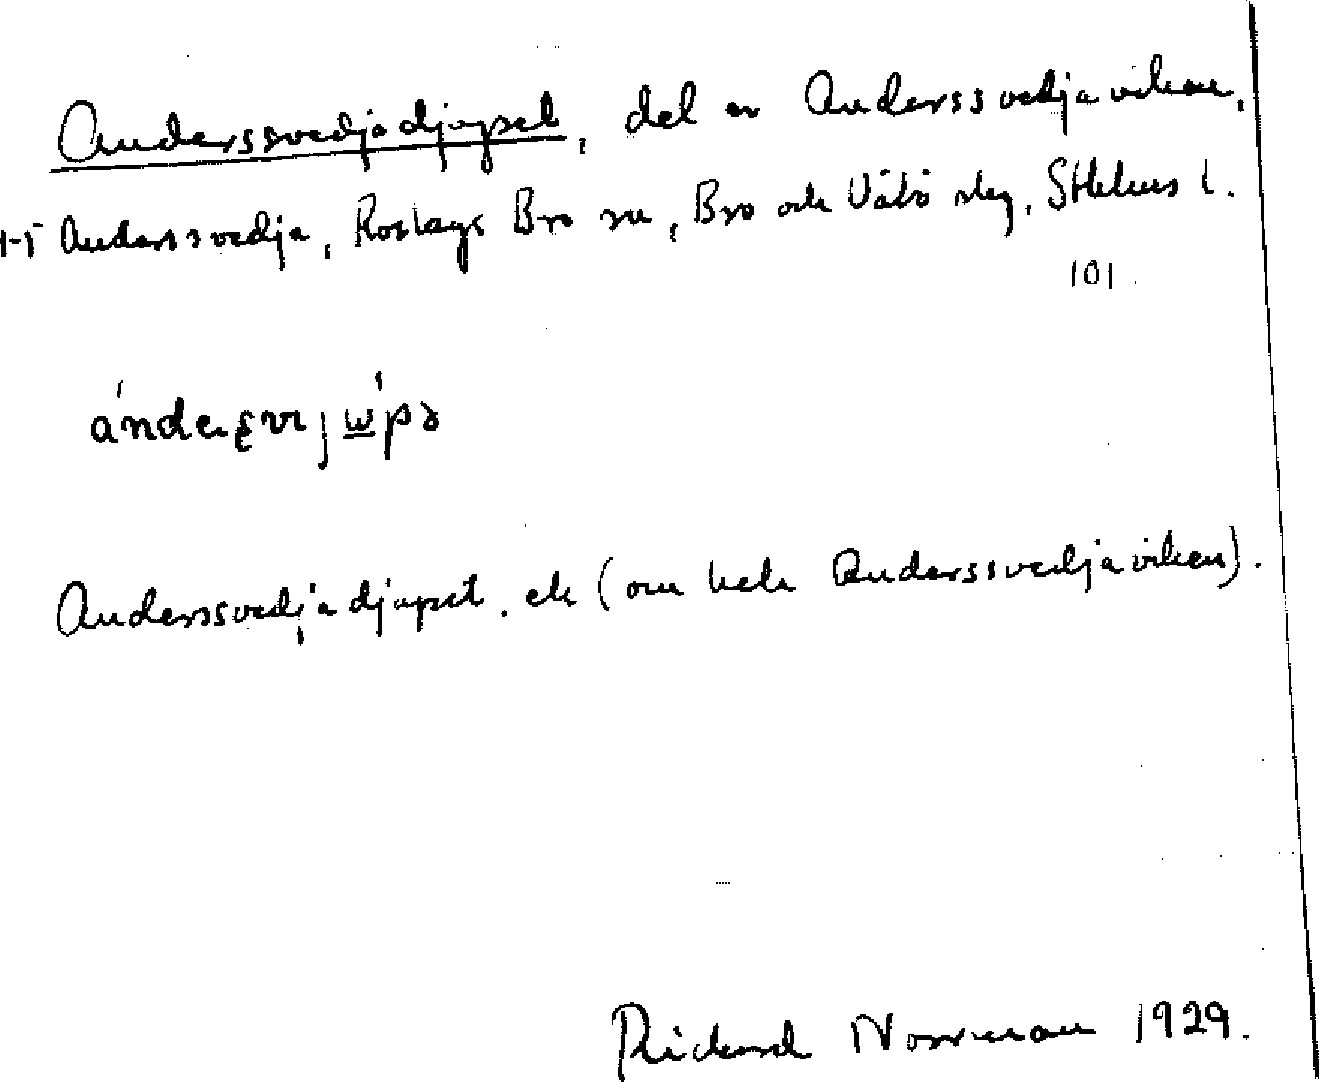 Anderssvedjadjupet, del av Anderssvedjaviken,
1-5 Anderssvedja, Roslags Bro sn, Bro och Vätö skg, Sthlms l.
101.
Anderssvedjadjupet. ek (om hela Anderssvedjaviken).
Rickard Norrman 1929.